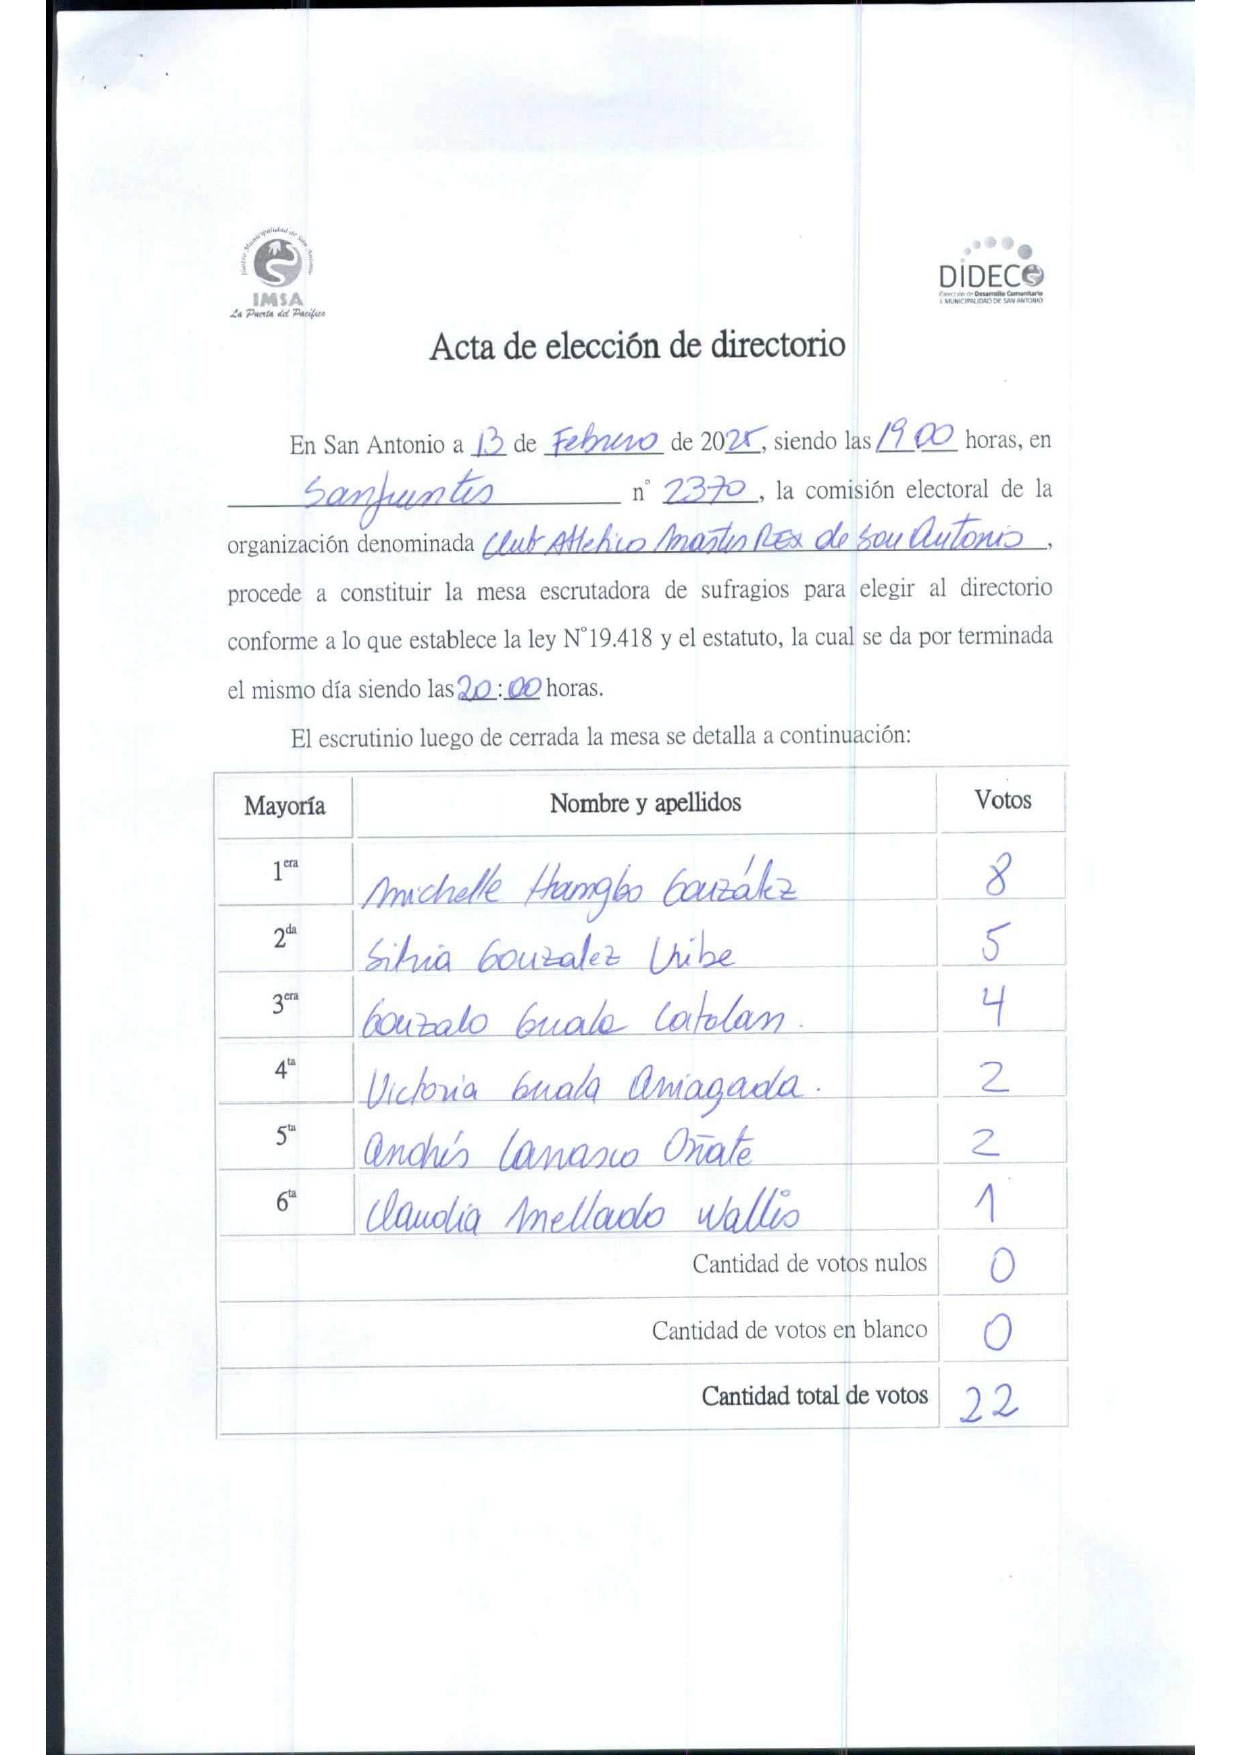 Ilustre Municipalidad de San Antonio
IMSA
La Puerta del Pacífico
DIDECO
Dirección de Desarrollo Comunitario
I. MUNICIPALIDAD DE SAN ANTONIO
Acta de elección de directorio
En San Antonio a 13 de Febrero de 2025, siendo las 19 00 horas, en
Sanfuentes n° 2370, la comisión electoral de la
organización denominada Club Atletico Master Rex de San Antonio,
procede a constituir la mesa escrutadora de sufragios para elegir al directorio
conforme a lo que establece la ley N°19.418 y el estatuto, la cual se da por terminada
el mismo día siendo las 20:00 horas.
El escrutinio luego de cerrada la mesa se detalla a continuación:
Mayoría Nombre y apellidos Votos
1era Michelle González 8
2da Silvia Gonzalez Uribe 5
3era Gonzalo Guala Catalan. 4
4ta Victoria Guala Arriagada. 2
5ta Andrés Carrasco Oñate 2
6ta Claudia Mellado Wallis 1
Cantidad de votos nulos 0
Cantidad de votos en blanco 0
Cantidad total de votos 22